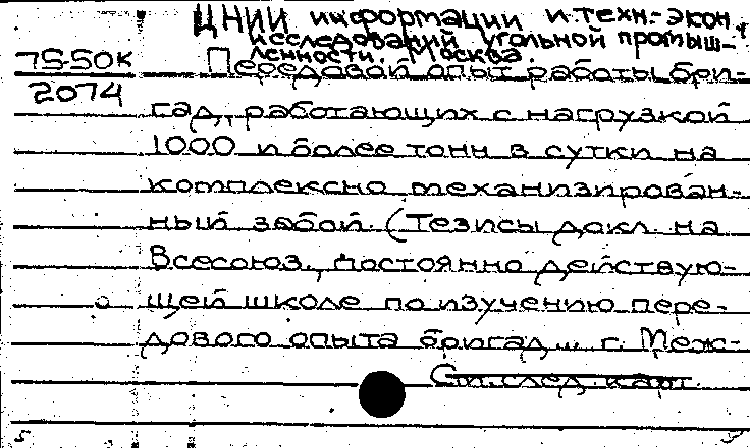 ЦНИИ информации и техн.-экон.
исследований угольной промыш-
ленности. Москва.
75-50к
Передовой опыт работы бри-
2074
гад, работающих с нагрузкой
1000 и более тонн в сутки на
комплексно механизирован-
ный забой. (Тезисы докл. на
Всесоюз., постоянно действую-
щей школе по изучению пере-
дового опыта бригад... г. Меж-
См. след. карт.
5 5